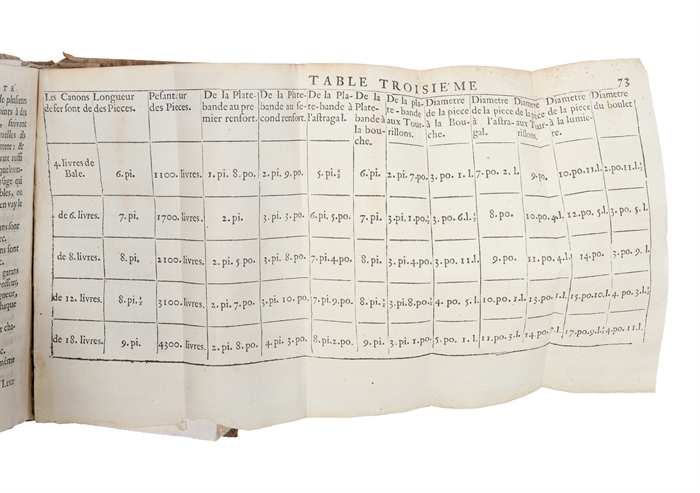 TABLE TROISIE'ME 73
Les Canons de fer sont de
Longueur des Pieces.
Pesanteur des Pieces.
De la Plate-bande au premier renfort.
De la Plate-bande au second renfort.
De la Plate-bande à l'astragal.
De la Plate-bande à la bouche.
De la plate-bande aux Tourillons.
Diametre de la piece à la Bouche.
Diametre de la piece à l'astragal.
Diametre de la piece aux Tourillons.
Diametre de la piece à la lumiere.
Diametre du boulet
4. livres de Bale. 6. pi. 1100. livres. 1. pi. 8. po. 2. pi. 9. po. 5. pi. ½ 6. pi. 2. pi. 7. po. 3. po. 1. l. 7. po. 2. l. 9. po. 10. po. 11. l. 2. po. 11. l.
de 6. livres. 7. pi. 1700. livres. 2. pi. 3. pi. 3. po. 6. pi. 5. po. 7. pi. 3. pi. 1. po. ½ 3. po. 6. l. ½ 8. po. 10. po. 4. l. 12. po. 5. l. 3. po. 5. l.
de 8. livres. 8. pi. 2100. livres. 2. pi. 5. po. 3. pi. 8. po. 7. pi. 4. po. 8. pi. 3. pi. 4. po. 3. po. 11. l. 9. po. 11. po. 4. l. 14. po. 3. po. 9. l.
de 12. livres. 8. pi. ½ 3100. livres. 2. pi. 7. po. 3. pi. 10. po. 7. pi. 9. po. 8. pi. ½ 3. pi. 8. po. ½ 4. po. 5. l. 10. po. 1. l. 13. po. 1. l. 15. po. 10. l. 4. po. 3. l. ½
de 18. livres. 9. pi. 4300. livres. 2. pi. 8. po. 4. pi. 3. po. 8. pi. 2. po. 9. pi. 3. pi. 1. po. 5. po. 1. l. 11. po. 5. l. 14. po. 7. l. 17. po. 9. l. ½ 4. po. 11. l.
de plusieurs
suivant
Leur